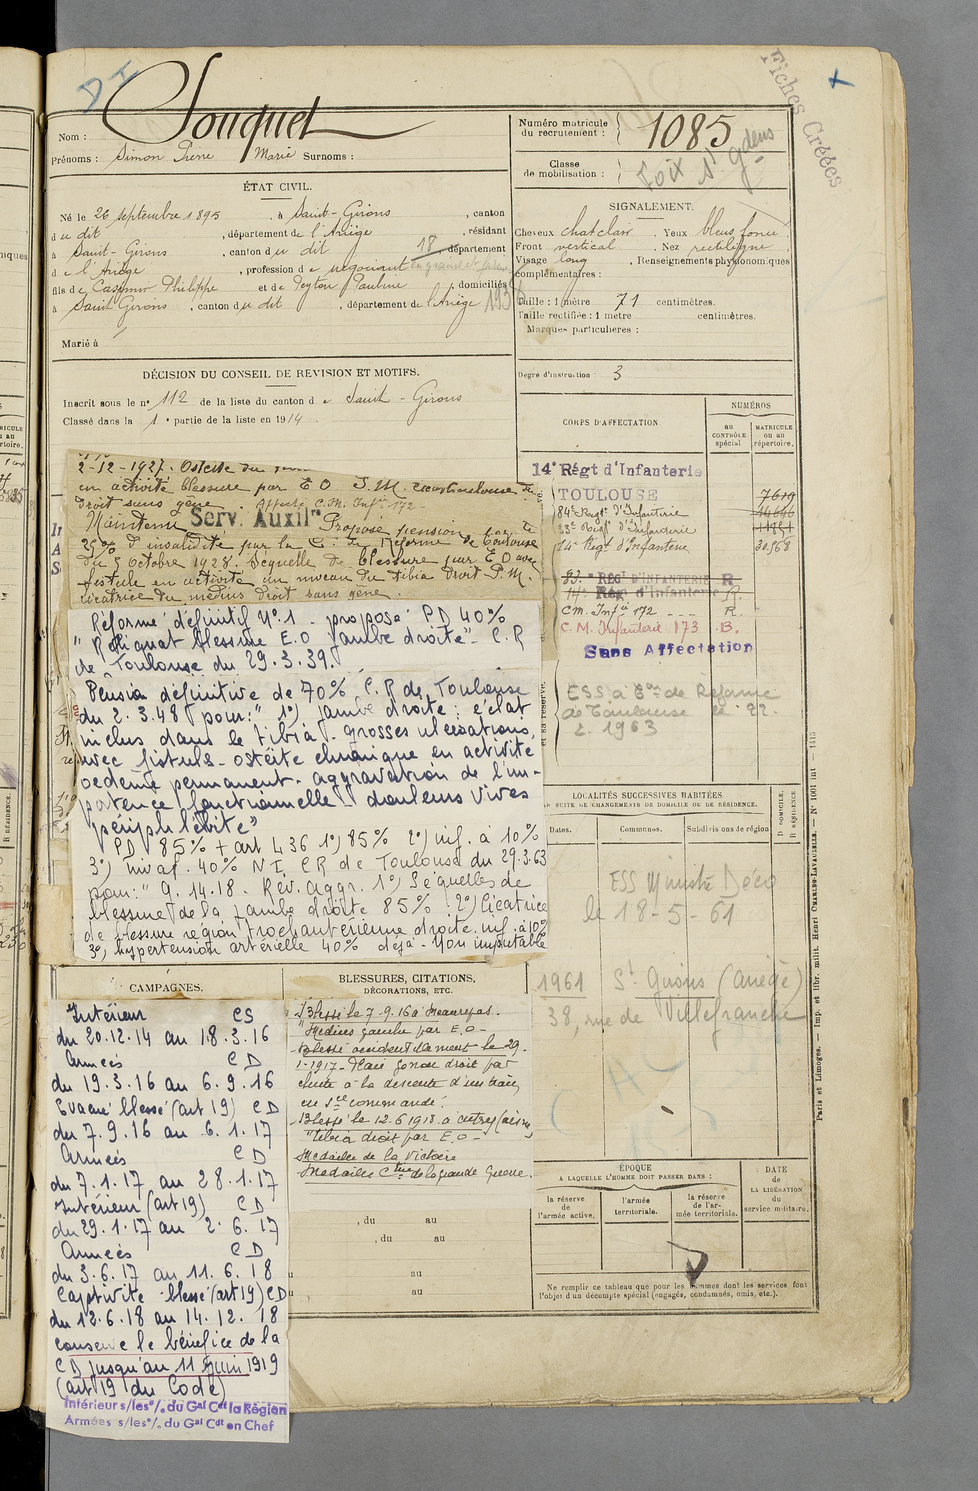 Souquet
Nom :
Prénoms : Simon Pierre Marie Surnoms :
Numéro matricule
du recrutement :
1085
Classe
de mobilisation :
Foix St Gdens
Fiches Créées
ÉTAT CIVIL.
Né le 26 septembre 1895, à Saint-Girons, canton
du dit, département de l'Ariège, résidant
à Saint-Girons, canton du dit 18, département
de l'Ariège, profession de négociant
fils de Casimir Philippe et de Peyton Pauline, domiciliés
à Saint Girons, canton du dit, département de l'Ariège
Marié à
SIGNALEMENT.
Cheveux chat clair. Yeux bleus foncé
Front vertical, Nez rectiligne,
Visage long, Renseignements physionomiques
complémentaires :
Taille : 1 mètre 71 centimètres.
Taille rectifiée : 1 mètre centimètres.
Marques particulières :
Degré d'instruction : 3
DÉCISION DU CONSEIL DE REVISION ET MOTIFS.
Inscrit sous le n° 112 de la liste du canton de Saint-Girons
Classé dans la 1e partie de la liste en 1914.
CORPS D'AFFECTATION
NUMÉROS
AU
CONTRÔLE
spécial
MATRICULE
OU AU
répertoire.
14e Régt d'Infanterie
TOULOUSE 7619
84e Regt d'Infanterie
83e Regt d'Infanterie
14e Regt d'Infanterie 30568
83e REGt D'INFANTERIE R
14e Régt d'Infanterie R.
C.M. Infie 172 --- R.
C.M. Infanterie 173 B.
Sans Affectation
ESS à Con de Reforme
de Toulouse le 22.
2. 1963
2-12-1927. Osteite du
en activité blessure par E O
droit sans gêne. Affecté C.M. Infie 172
Maintenu Serv. Auxilre Proposé pension
25% d'invalidité par la C. de Réforme de Toulouse
du 5 octobre 1928. Sequelle de blessure par E O avec
fistule en activité au niveau du tibia droit P.M.
cicatrice du médius droit sans gêne.
Réforme définitif N° 1 - proposé PD 40%
" Reliquat blessure E.O jambe droite" - C.R
de Toulouse du 29.3.39.
Pension définitive de 70% C.R de Toulouse
du 2.3.48 pour : " 1°) jambe droite : éclat
inclus dans le tibia - grosses ulcérations,
avec fistule - ostéite chronique en activité
oedème permanent - aggravation de l'im-
potence fonctionnelle douleurs vives
périphlébite"
PD 85% + art 436 1°) 85% 2°) inf. à 10%
3°) inval. 40% N I. CR de Toulouse du 29.3.63
pour : " G. 14.18. Rév. aggr. 1°) Séquelles de
blessure de la jambe droite 85% : 2°) Cicatrice
de blessure région trochantérienne droite. inf. à 10%
3°) hypertension artérielle 40% déjà. Non imputable
LOCALITÉS SUCCESSIVES HABITÉES
PAR SUITE DE CHANGEMENTS DE DOMICILE OU DE RÉSIDENCE.
Dates. Communes. Subdivisions de région
D DOMICILE.
R RÉSIDENCE.
ESS Ministre Déco
le 18-5-61
1961 St Girons (Ariège)
38, rue de Villefranche
CAMPAGNES.
Intérieur CS
du 20.12.14 au 18.3.16
Armées CD
du 19.3.16 au 6.9.16
Evacué blessé (art 19) CD
du 7.9.16 au 6.1.17
Armées CD
du 7.1.17 au 28.1.17
Intérieur (art 19) CD
du 29.1.17 au 2.6.17
Armées CD
du 3.6.17 au 11.6.18
Captivité - blessé (art 19) CD
du 12.6.18 au 14.12.18
Conserve le bénéfice de la
CD jusqu'au 11 Juin 1919
(art 19 du Code)
Intérieur s/les o/. du Gal Cdt la Région
Armées s/les o/. du Gal Cdt en Chef
BLESSURES, CITATIONS,
DÉCORATIONS, ETC.
Blessé le 7-9-16 à Maurepas.
"Médius gauche par E.O -
Blessé accidentellement le 29-
1-1917 - Plaie genou droit par
chute à la descente d'un train,
en sce commandé.
Blessé le 12.6.1918 à Cutry (Aisne)
"Tibia droit par E.O -
Médaille de la Victoire
Médaille Ctive de la Grande Guerre.
, du au
, du au
au
au
ÉPOQUE
A LAQUELLE L'HOMME DOIT PASSER DANS :
la réserve
de
l'armée active.
l'armée
territoriale.
la réserve
de l'ar-
mée territoriale.
DATE
de
LA LIBÉRATION
du
service militaire.
Ne remplir ce tableau que pour les hommes dont les services font
l'objet d'un décompte spécial (engagés, condamnés, omis, etc.).
Paris et Limoges. — Imp. et libr. milit. Henri CHARLES-LAVAUZELLE. — N° 1001 int — 1415